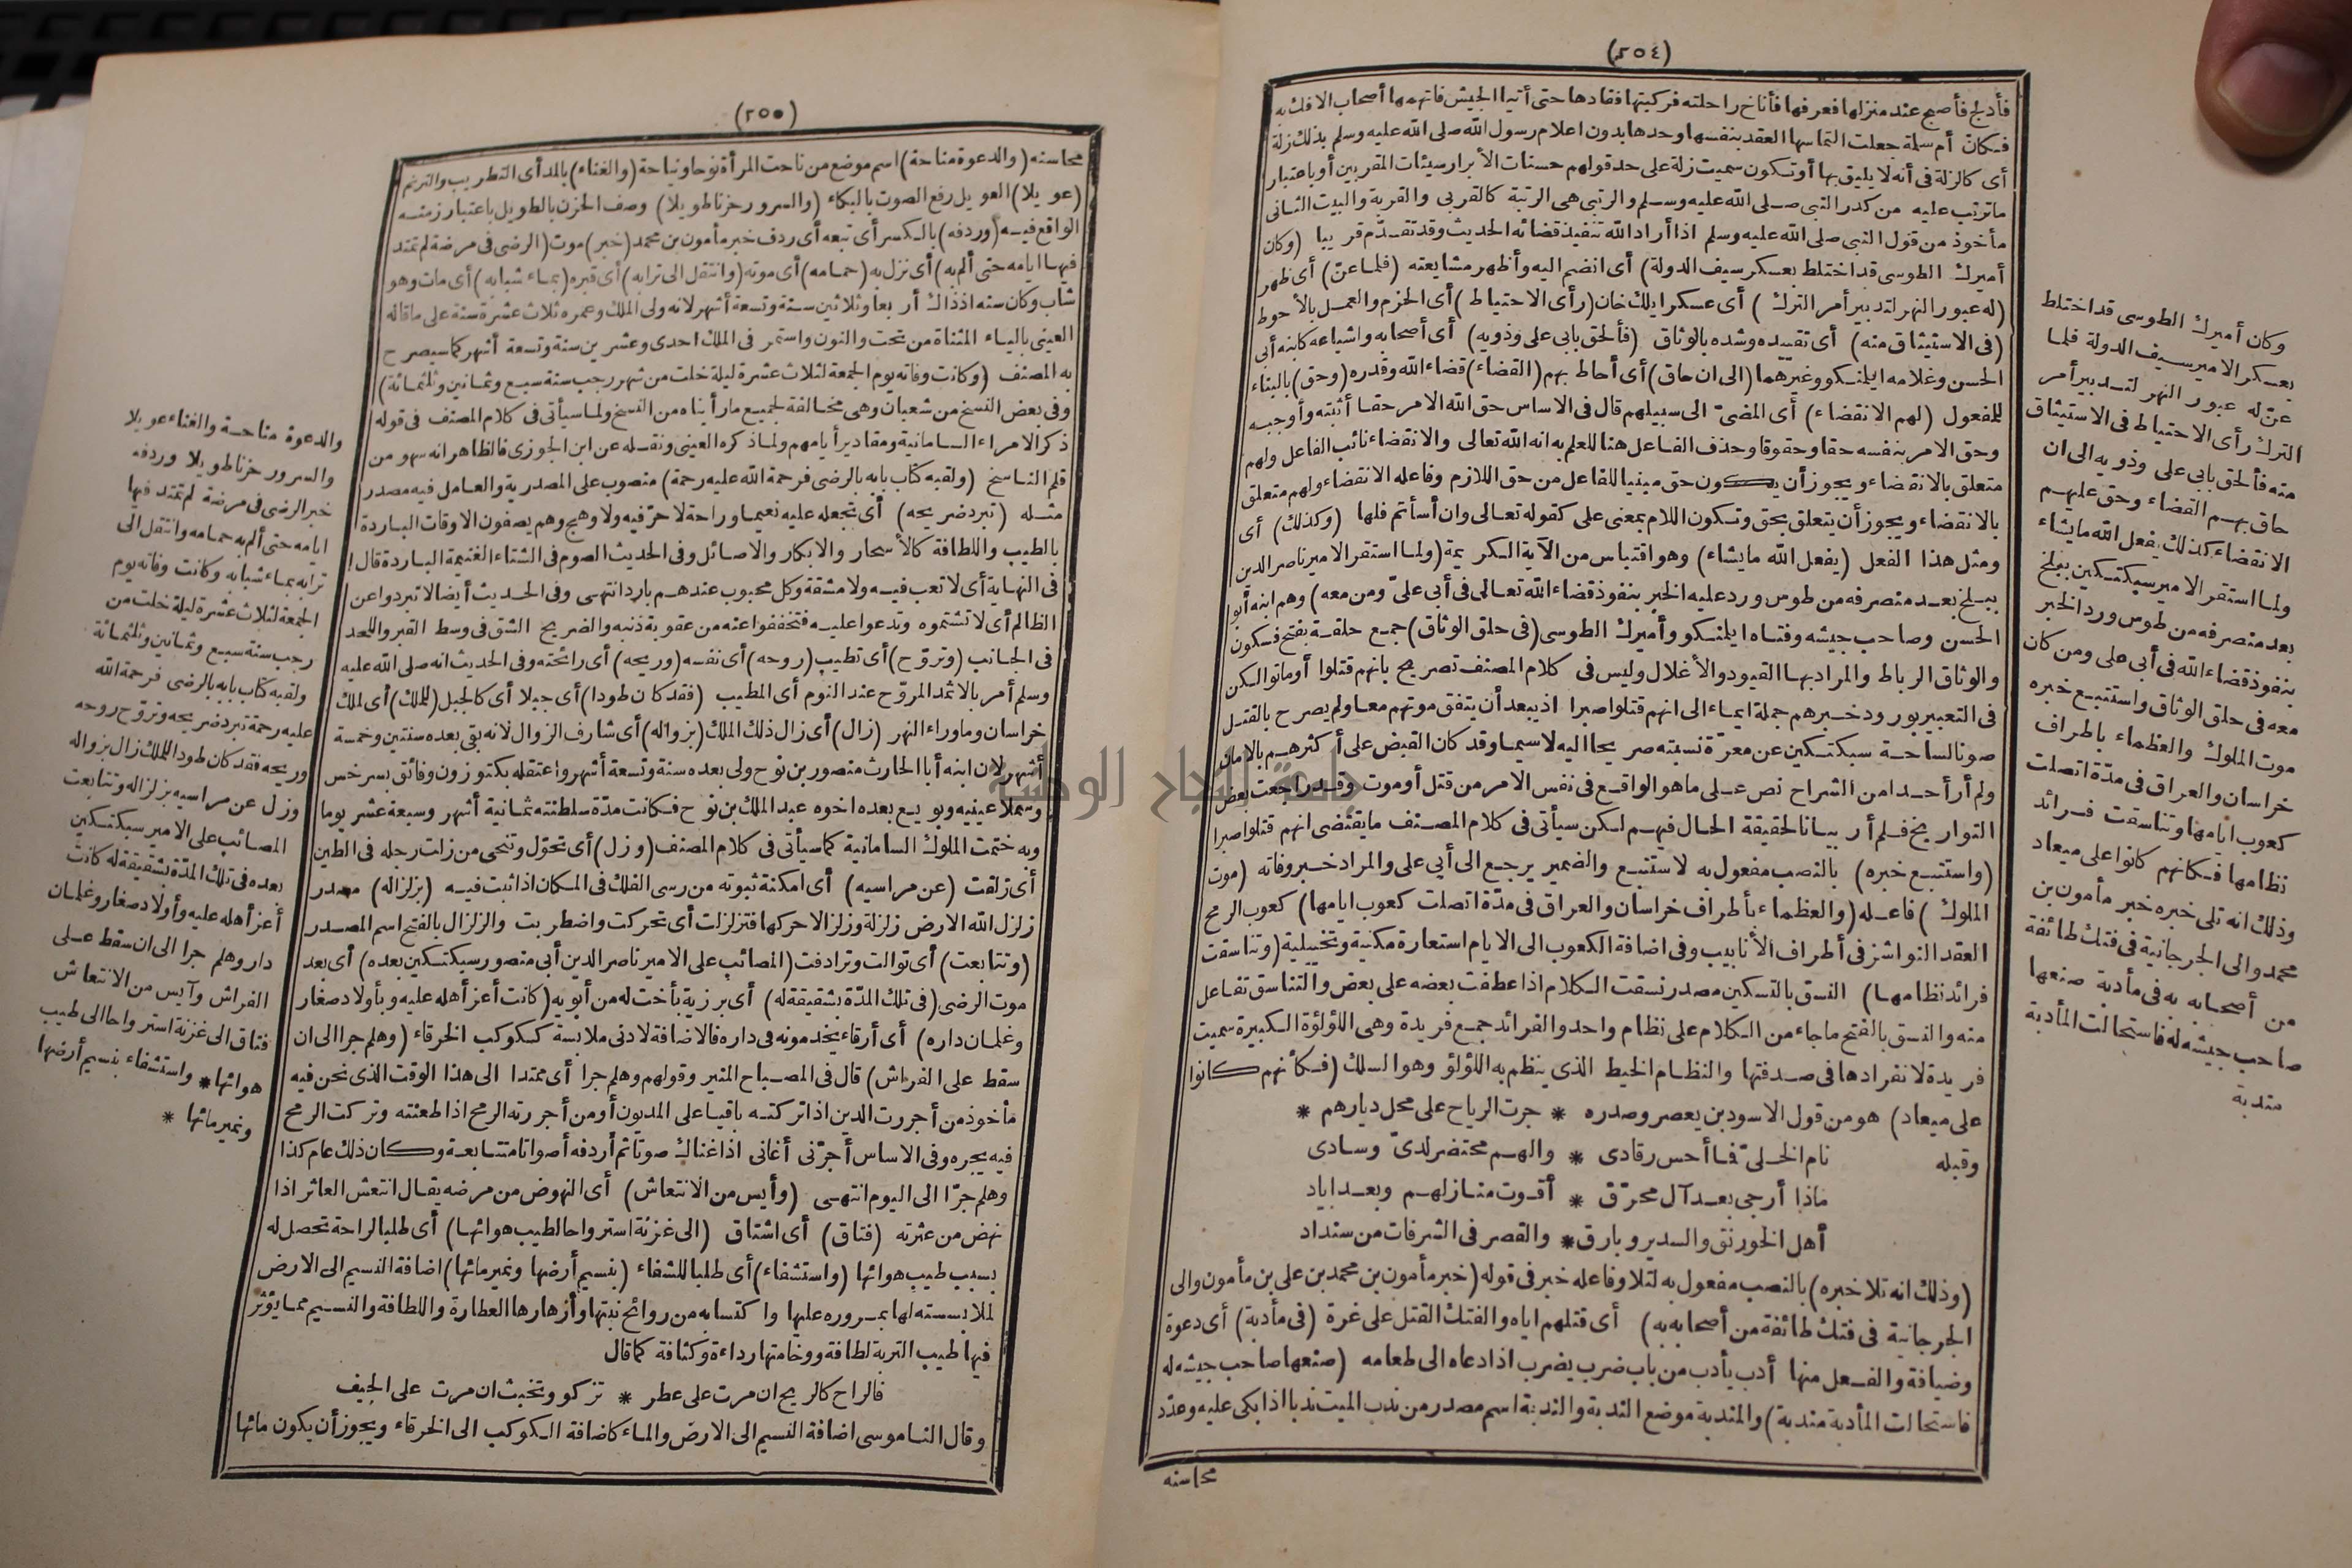 (٢٥٤)
فأدلج فأصبح عند منزلها فعرفها فأناخ راحلته فركبتها فقادها حتى أتيا الجيش فاتهمها أصحاب الافك به
فكانّ أم سلمة جعلت التماسها العقد بنفسها وحدها بدون اعلام رسول الله صلى الله عليه وسلم بذلك زلة
أى كالزلة فى أنه لا يليق بها أو تكون سميت زلة على حد قولهم حسنات الأبرار سيئات المقربين أو باعتبار
ما ترتب عليه من كدر النبى صلى الله عليه وسلم والرتبى هى الرتبة كالقربى والقربة والبيت الثانى
مأخوذ من قول النبى صلى الله عليه وسلم اذا أراد الله تنفيذ قضائه الحديث وقد تقدّم قريبا (وكان
أميرك الطوسى قد اختلط بعسكر سيف الدولة) أى انضم اليه وأظهر مشايعته (فلما عنّ) أى ظهر
(له عبور النهر لتدبير أمر الترك) أى عسكر ايلك خان (رأى الاحتياط) أى الحزم والعمل بالأحوط
(فى الاستيثاق منه) أى تقييده وشده بالوثاق (فألحق بابى على وذويه) أى أصحابه واشياعه كابنه أبى
الحسن وغلامه ايلمنكو وغيرهما (الى ان حاق) أى أحاط بهم (القضاء) قضاء الله وقدره (وحق) بالبناء
للمفعول (لهم الانقضاء) أى المضىّ الى سبيلهم قال فى الاساس حق الله الامر حقا أثبته وأوجبه
وحق الامر بنفسه حقا وحقوقا وحذف الفاعل هنا للعلم به انه الله تعالى والانقضاء نائب الفاعل ولهم
متعلق بالانقضاء ويجوز أن يكون حق مبنيا للفاعل من حق اللازم وفاعله الانقضاء ولهم متعلق
بالانقضاء ويجوز أن يتعلق بحق وتكون اللام بمعنى على كقوله تعالى وان أسأتم فلها (وكذلك) أى
ومثل هذا الفعل (يفعل الله ما يشاء) وهو اقتباس من الآية الكريمة (ولما استقر الامير ناصر الدين
ببلخ بعد منصرفه من طوس ورد عليه الخبر بنفوذ قضاء الله تعالى فى أبى علىّ ومن معه) وهم ابنه أبو
الحسن وصاحب جيشه وفتاه ايلمنكو وأميرك الطوسى (فى حلق الوثاق) جمع حلقة بفتح فسكون
والوثاق الرباط والمراد بها القيود والأغلال وليس فى كلام المصنف تصريح بانهم قتلوا أو ماتوا لكن
فى التعبير بورود خبرهم جملة ايماء الى انهم قتلوا صبرا اذ يبعد أن يتفق موتهم معا ولم يصرح بالقتل
صونا لساحة سبكتكين عن معرّة نسبته صريحا اليه لا سيما وقد كان القبض على أكثرهم بالامان
ولم أر أحدا من الشراح نص على ما هو الواقع فى نفس الامر من قتل أو موت وقد راجعت بعض
التواريخ فلم أر بيانا لحقيقة الحال فيهم لكن سيأتى فى كلام المصنف ما يقتضى انهم قتلوا صبرا
(واستتبع خبره) بالنصب مفعول به لاستتبع والضمير يرجع الى أبى على والمراد خبر وفاته (موت
الملوك) فاعله (والعظماء بأطراف خراسان والعراق فى مدّة اتصلت كعوب ايامها) كعوب الرمح
العقد النواشز فى أطراف الأنابيب وفى اضافة الكعوب الى الايام استعارة مكنية وتخييلية (وتناسقت
فرائد نظامها) النسق بالتسكين مصدر نسقت الكلام اذا عطفت بعضه على بعض والتناسق تفاعل
منه والنسق بالفتح ما جاء من الكلام على نظام واحد والفرائد جمع فريدة وهى اللؤلؤة الكبيرة سميت
فريدة لانفرادها فى صدفتها والنظام الخيط الذى ينظم به اللؤلؤ وهو السلك (فكأنهم كانوا
على ميعاد) هو من قول الاسود بن يعصر وصدره * جرت الرياح على محل ديارهم *
وقبله نام الخلىّ فما أحس رقادى * والهم محتضر لدىّ وسادى
ماذا أرجى بعد آل محرّق * أقوت منازلهم وبعد اياد
أهل الخورنق والسدير وبارق * والقصر فى الشرفات من سنداد
(وذلك انه تلا خبره) بالنصب مفعول به لتلا وفاعله خبر فى قوله (خبر مأمون بن محمد بن على بن مأمون والى
الجرجانية فى فتك طائفة من أصحابه به) أى قتلهم اياه والفتك القتل على غرة (فى مأدبة) أى دعوة
وضيافة والفعل منها أدب يأدب من باب ضرب يضرب اذا دعاه الى طعامه (صنعها صاحب جيشه له
فاستحالت المأدبة مندبة) والمندبة موضع الندبة والندبة اسم مصدر من ندب الميت ندبا اذا بكى عليه وعدّد
محاسنه
وكان أميرك الطوسى قد اختلط
بعسكر الامير سيف الدولة فلما
عنّ له عبور النهر لتدبير أمر
الترك رأى الاحتياط فى الاستيثاق
منه فألحق بابى على وذويه الى ان
حاق بهم القضاء وحق عليهم
الانقضاء كذلك يفعل الله ما يشاء
ولما استقر الامير سبكتكين ببلخ
بعد منصرفه من طوس ورد الخبر
بنفوذ قضاء الله فى أبى على ومن كان
معه فى حلق الوثاق واستتبع خبره
موت الملوك والعظماء باطراف
خراسان والعراق فى مدّة اتصلت
كعوب ايامها وتناسقت فرائد
نظامها فكانهم كانوا على ميعاد
وذلك انه تلى خبره خبر مأمون بن
محمد والى الجرجانية فى فتك طائفة
من أصحابه به فى مأدبة صنعها
صاحب جيشه له فاستحالت المأدبة
مندبة
(٢٥٥)
محاسنه (والدعوة مناحة) اسم موضع من ناحت المرأة نوحا ونياحة (والغناء) بالمد أى التطريب والترنم
(عويلا) العويل رفع الصوت بالبكاء (والسرور حزنا طويلا) وصف الحزن بالطويل باعتبار زمنه
الواقع فيه (وردفه) بالكسر أى تبعه أى ردف خبر مأمون بن محمد (خبر) موت (الرضى فى مرضة لم تمتد
فيها ايامه حتى ألم به) أى نزل به (حمامه) أى موته (وانتقل الى ترابه) أى قبره (بماء شبابه) أى مات وهو
شاب وكان سنه اذ ذاك أربعا وثلاثين سنة وتسعة أشهر لانه ولى الملك وعمره ثلاث عشرة سنة على ما قاله
العينى بالياء المثناة من تحت والنون واستمر فى الملك احدى وعشرين سنة وتسعة أشهر كما سيصرح
به المصنف (وكانت وفاته يوم الجمعة لثلاث عشرة ليلة خلت من شهر رجب سنة سبع وثمانين وثلثمائة)
وفى بعض النسخ من شعبان وهى مخالفة لجميع ما رأيناه من النسخ ولما سيأتى فى كلام المصنف فى قوله
ذكر الامراء السامانية ومقادير أيامهم ولما ذكره العينى ونقله عن ابن الجوزى فالظاهر انه سهو من
قلم الناسخ (ولقبه كتاب بابه بالرضى فرحمة الله عليه رحمة) منصوب على المصدرية والعامل فيه مصدر
مثله (تبرد ضريحه) أى تجعله عليه نعيما وراحة لا حرّ فيه ولا وهج وهم يصفون الاوقات الباردة
بالطيب واللطافة كالأسحار والابكار والاصائل وفى الحديث الصوم فى الشتاء الغنيمة الباردة قال
فى النهاية أى لا تعب فيه ولا مشقة وكل محبوب عندهم بارد انتهى وفى الحديث أيضا لا تبردوا عن
الظالم أى لا تشتموه وتدعوا عليه فتخففوا عنه من عقوبة ذنبه والضريح الشق فى وسط القبر واللحد
فى الجانب (وتروّح) أى تطيب (روحه) أى نفسه (وريحه) أى رائحته وفى الحديث انه صلى الله عليه
وسلم أمر بالاثمد المروّح عند النوم أى المطيب (فقد كان طودا) أى جبلا أى كالجبل (للملك) أى لملك
خراسان وما وراء النهر (زال) أى زال ذلك الملك (بزواله) أى شارف الزوال لانه بقى بعده سنتين وخمسة
أشهر لان ابنه أبا الحارث منصور بن نوح ولى بعده سنة وتسعة أشهر واعتقله بكتوزون وفائق بسرخس
وسملا عينيه وبويع بعده اخوه عبد الملك بن نوح فكانت مدّة سلطنته ثمانية أشهر وسبعة عشر يوما
وبه ختمت الملوك السامانية كما سيأتى فى كلام المصنف (وزل) أى تحوّل وتنحى من زلت رجله فى الطين
أى زلقت (عن مراسيه) أى امكنة ثبوته من رسى الفلك فى المكان اذا ثبت فيه (بزلزاله) مصدر
زلزل الله الارض زلزلة وزلزالا حركها فتزلزلت أى تحركت واضطربت والزلزال بالفتح اسم المصدر
(وتتابعت) أى توالت وترادفت (المصائب على الامير ناصر الدين أبى منصور سبكتكين بعده) أى بعد
موت الرضى (فى تلك المدّة بشقيقة له) أى برزية بأخت له من أبويه (كانت أعز أهله عليه وبأولاد صغار
وغلمان داره) أى أرقاء يخدمونه فى داره فالاضافة لادنى ملابسة ككوكب الخرقاء (وهلم جرا الى ان
سقط على الفراش) قال فى المصباح المنير وقولهم وهلم جرا أى ممتدا الى هذا الوقت الذى نحن فيه
مأخوذ من أجررت الدين اذا تركته باقيا على المديون أو من أجررته الرمح اذا طعنته وتركت الرمح
فيه يجره وفى الاساس أجرّنى أغانى اذا غناك صوتا ثم أردفه أصواتا متتابعة وكان ذلك عام كذا
وهلم جرّا الى اليوم انتهى (وأيس من الانتعاش) أى النهوض من مرضه يقال انتعش العاثر اذا
نهض من عثرته (فتاق) أى اشتاق (الى غزنة استرواحا لطيب هوائها) أى طلبا لراحة تحصل له
بسبب طيب هوائها (واستشفاء) أى طلبا للشفاء (بنسيم أرضها ونمير مائها) اضافة النسيم الى الارض
لملابسته لها بمروره عليها واكتسابه من روائح نبتها وأزهارها العطارة واللطافة والنسيم مما يؤثر
فيها طيب التربة لطافة ووخامتها رداءة وكثافة كما قال
فالراح كالريح ان مرت على عطر * تزكو وتخبث ان مرت على الجيف
وقال الناموسى اضافة النسيم الى الارض والماء كاضافة الكوكب الى الخرقاء ويجوز أن يكون مائها
والدعوة مناحة والغناء عويلا
والسرور حزنا طويلا وردفه
خبر الرضى فى مرضة لم تمتد فيها
ايامه حتى ألم به حمامه وانتقل الى
ترابه بماء شبابه وكانت وفاته يوم
الجمعة لثلاث عشرة ليلة خلت من
رجب سنة سبع وثمانين وثلثمائة
ولقبه كتاب بابه بالرضى فرحمة الله
عليه رحمة تبرد ضريحه وتروّح روحه
وريحه فقد كان طودا للملك زال بزواله
وزل عن مراسيه بزلزاله وتتابعت
المصائب على الامير سبكتكين
بعده فى تلك المدّة بشقيقة له كانت
أعز أهله عليه وأولاد صغار وغلمان
دار وهلم جرا الى ان سقط على
الفراش وآيس من الانتعاش
فتاق الى غزنة استرواحا الى طيب
هوائها * واستشفاء بنسيم أرضها
ونمير مائها *
جامعة النجاح الوطنية